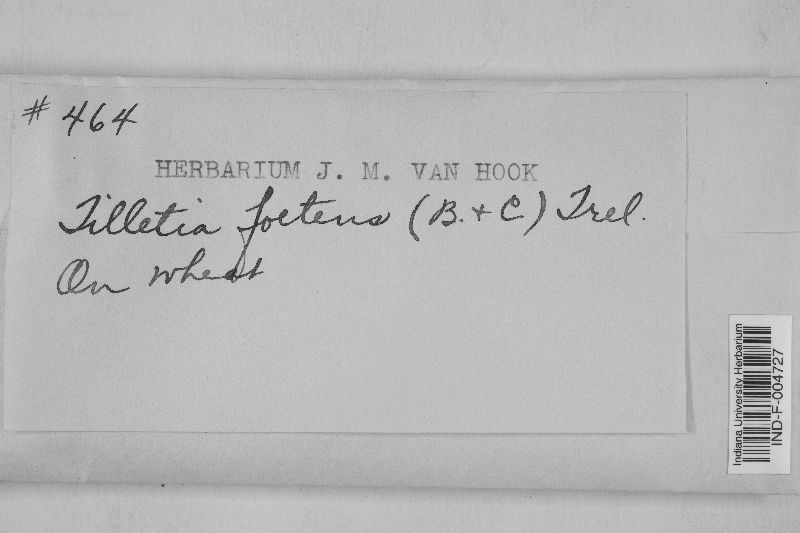 # 464
HERBARIUM J. M. VAN HOOK
Tilletia foetens (B. + C.) Trel.
On wheat
Indiana University Herbarium
IND-F-004727